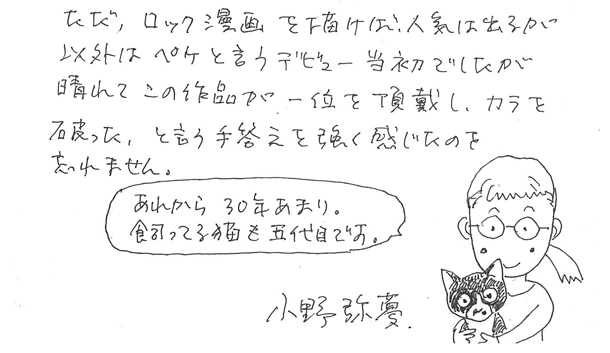 ただ、ロック漫画を描けば、人気は出るが
以外はペケと言うデビュー当初でしたが
晴れてこの作品が一位を頂戴し、カラを
破った、と言う手答えを強く感じたのを
忘れません。
あれから30年あまり。
飼ってる猫も五代目です。
小野弥夢.